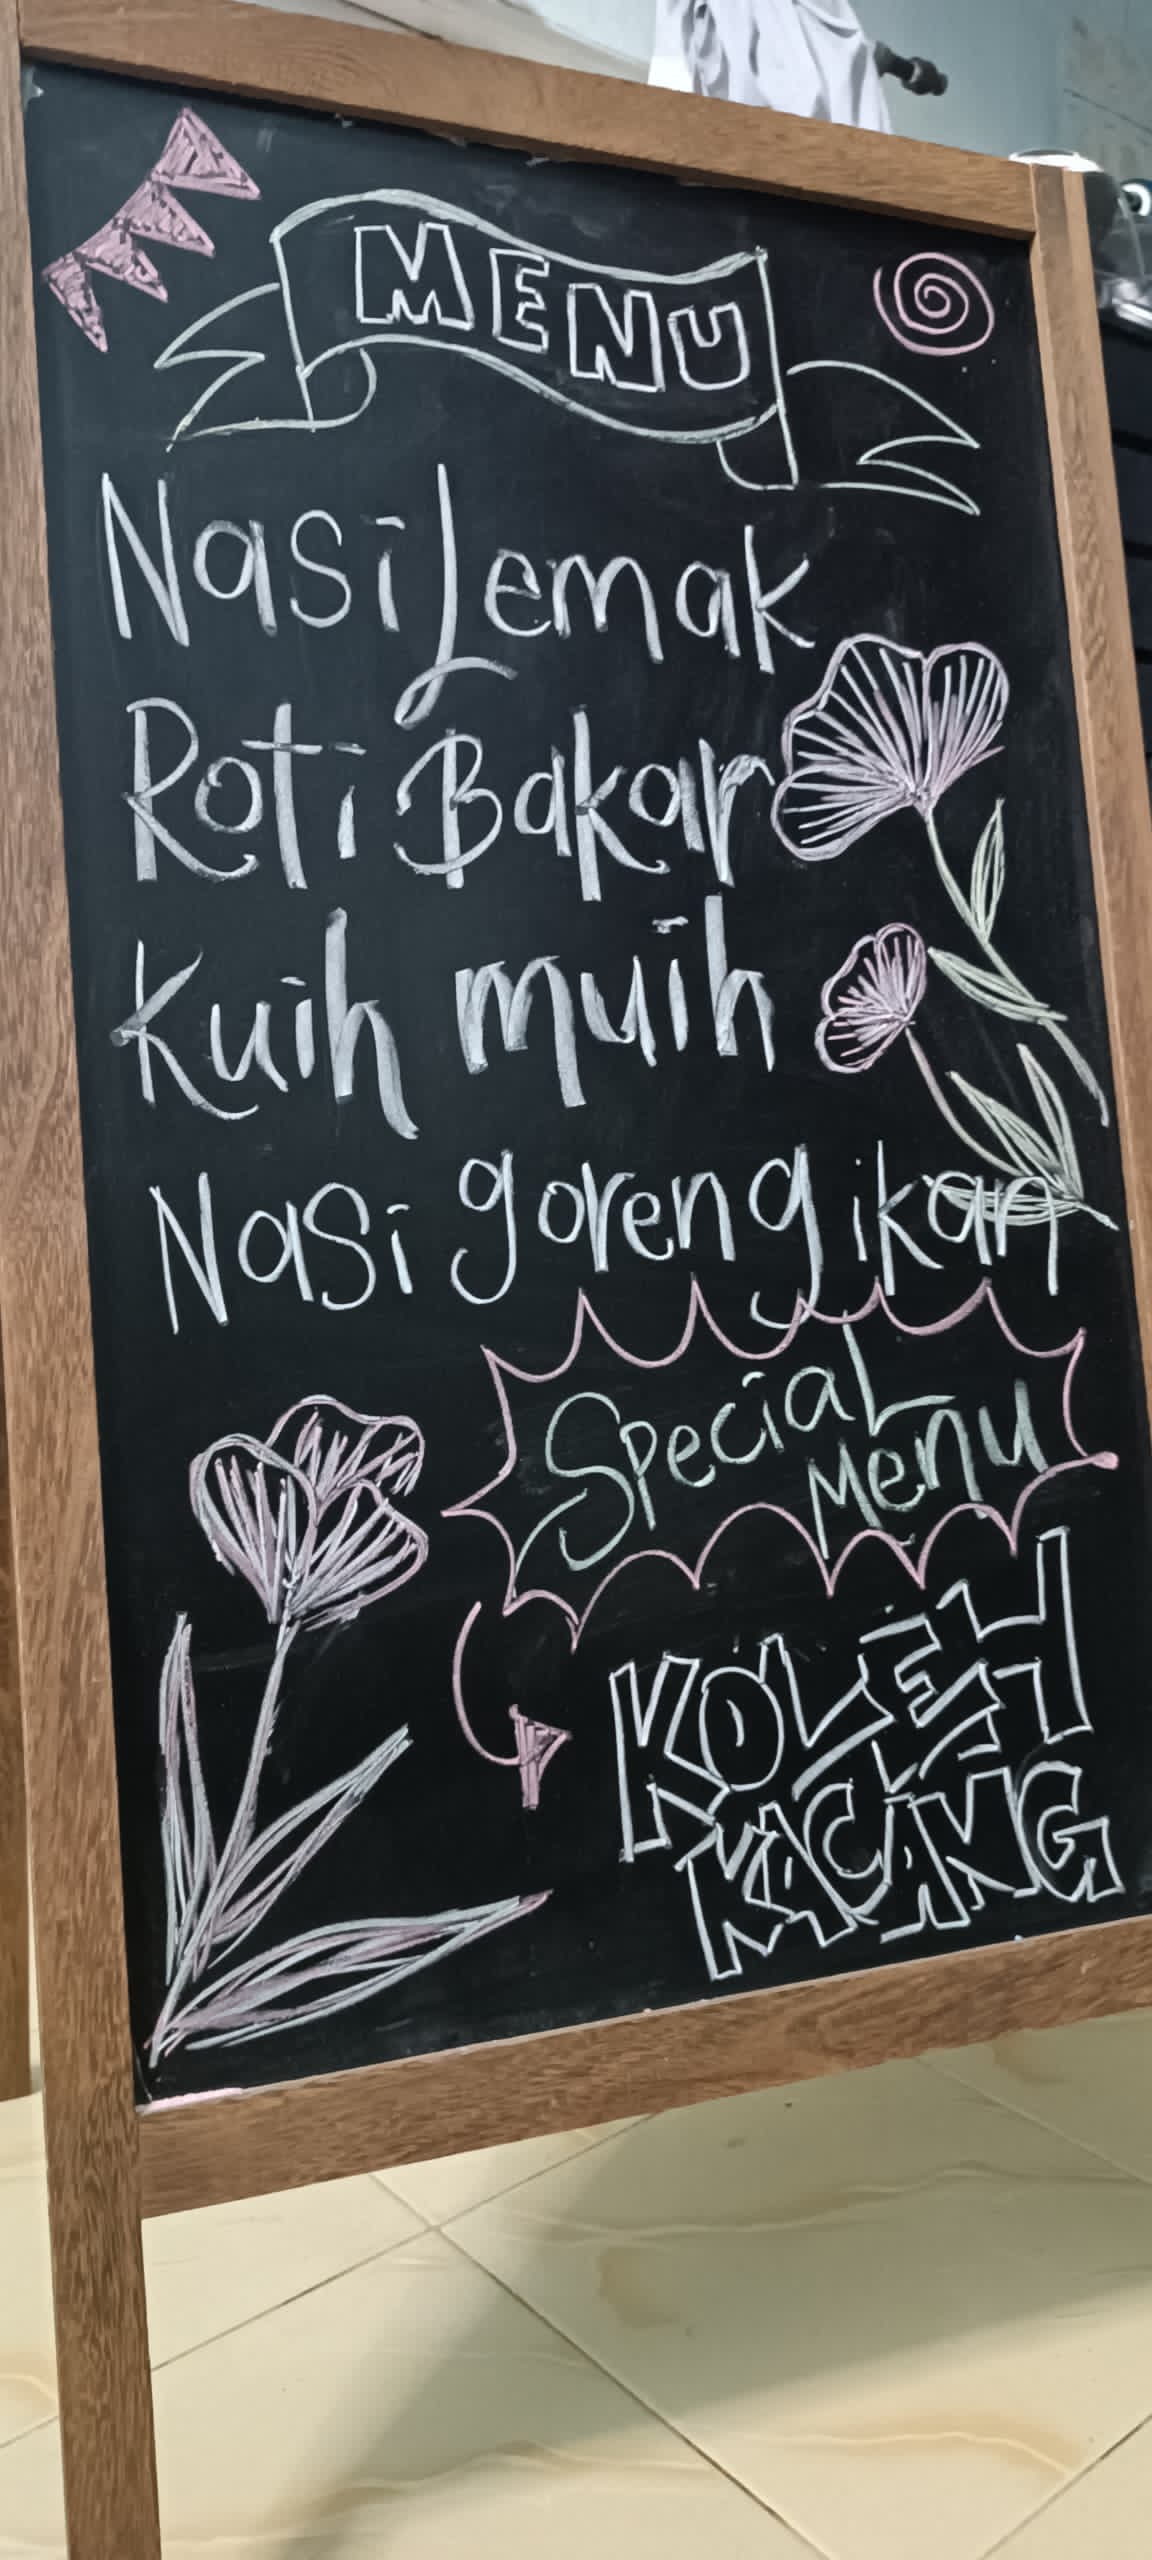 MENU
Nasi Lemak
Roti Bakar
Kuih muih
Nasi goreng ikan
Special
Menu
KOLEH
KACANG